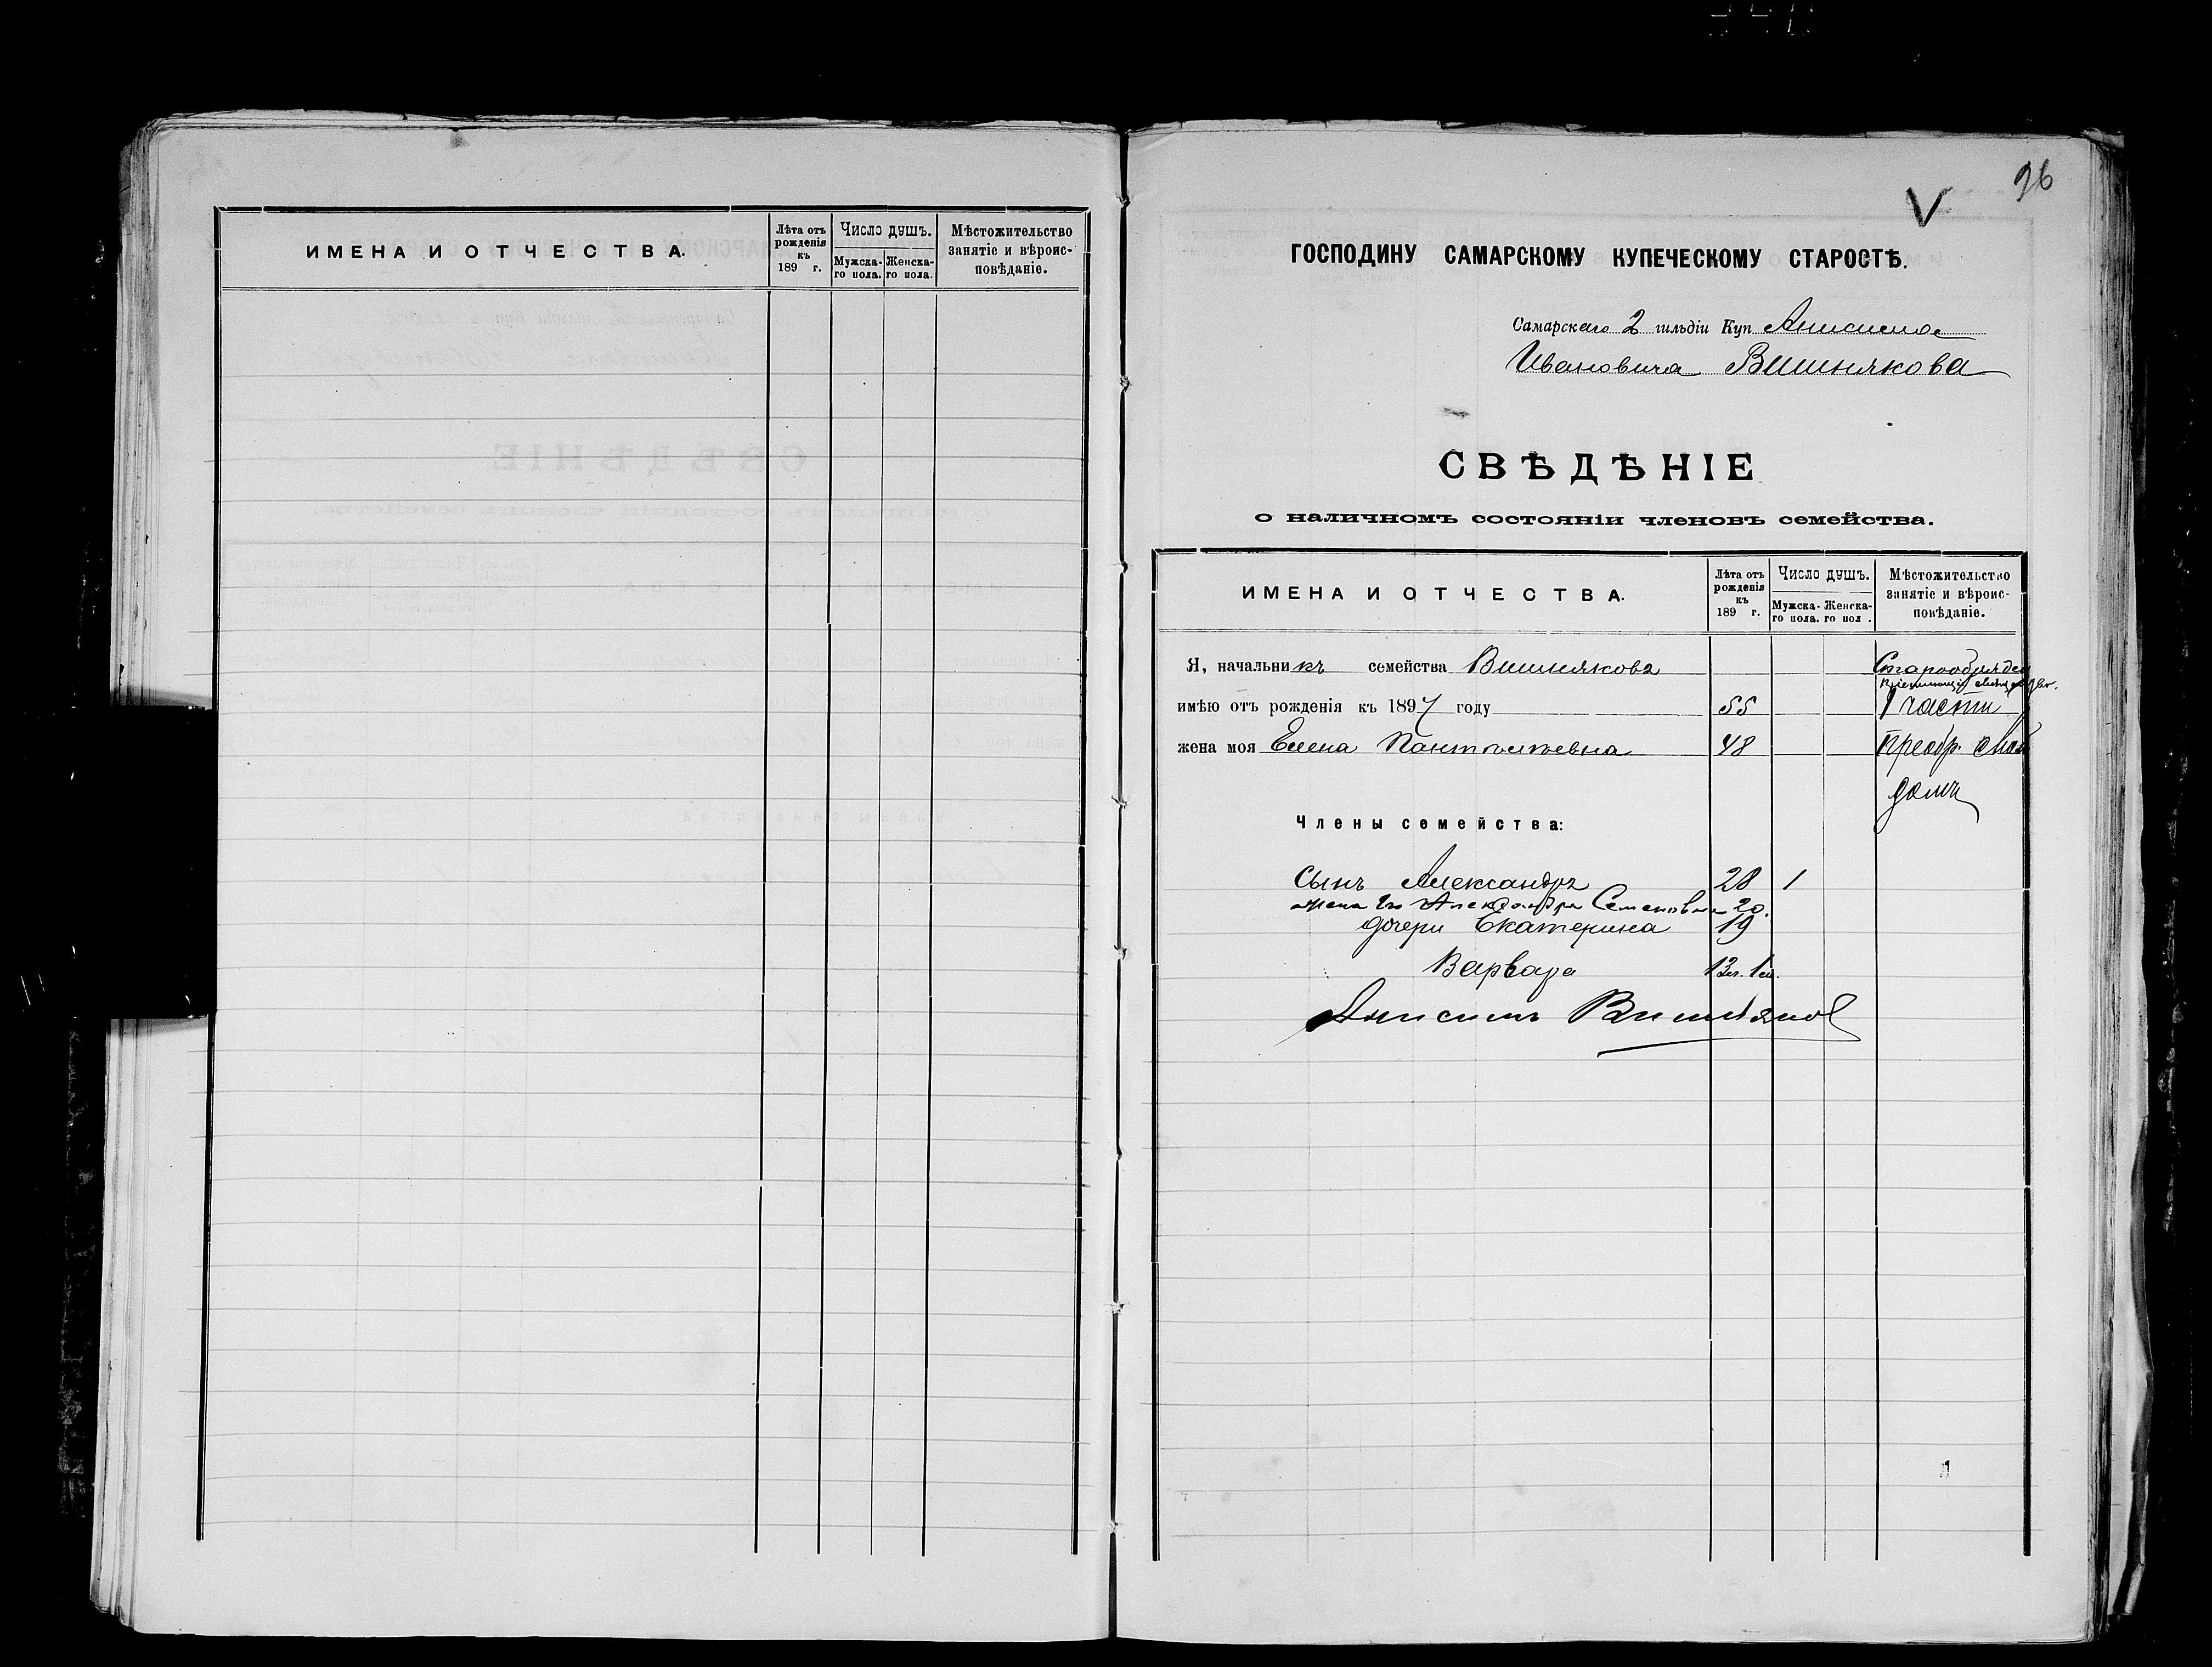 ИМЕНА И ОТЧЕСТВА.
Лѣта отъ рожденія къ 189 г.
Число душъ.
Мужска-го пола.
Женска-го пола.
Мѣстожительство занятіе и вѣроис-повѣданіе.
96
V
ГОСПОДИНУ САМАРСКОМУ КУПЕЧЕСКОМУ СТАРОСТѢ.
Самарскаго 2 гильдіи Куп Анисима
Ивановича Вишнякова
СВѢДѢНІЕ
о наличномъ состояніи членовъ семейства.
ИМЕНА И ОТЧЕСТВА.
Лѣта отъ рожденія къ 189 г.
Число душъ.
Мужска-го пола.
Женска-го пол .
Мѣстожительство занятіе и вѣроис-повѣданіе.
Я, начальникъ семейства Вишнякова Старообрядец
имѣю отъ рожденія къ 1897 году 55 1 части
жена моя Елена 48 Преобр.
домъ
Члены семейства:
Сынъ Александръ 28 1
жена его Александра Семеновна 20.
дочери Екатерина 19
Варвара 13
Анисимъ Вишняков